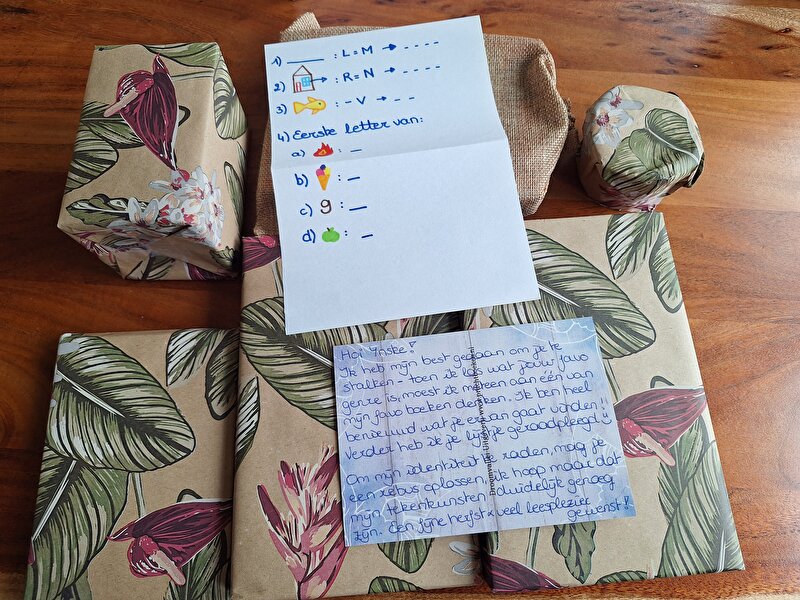 1) ____ : L = M → - - - -
2) : R = N → - - - -
3) : - V → - -
4) Eerste letter van:
a) : _
b) : _
c) 9 : _
d) : _
Hoi Ynske!
Ik heb mijn best gedaan om je te
stalken - toen ik las wat jouw favo
genre is, moest ik meteen aan één van
mijn favo boeken denken. Ik ben heel
benieuwd wat je ervan gaat vinden!
Verder heb ik je lijstje geraadpleegd
Om mijn identiteit te raden, mag je
een rebus oplossen, ik hoop maar dat
mijn tekenkunsten duidelijk genoeg
zijn. Een fijne herfst & veel leesplezier
gewenst!